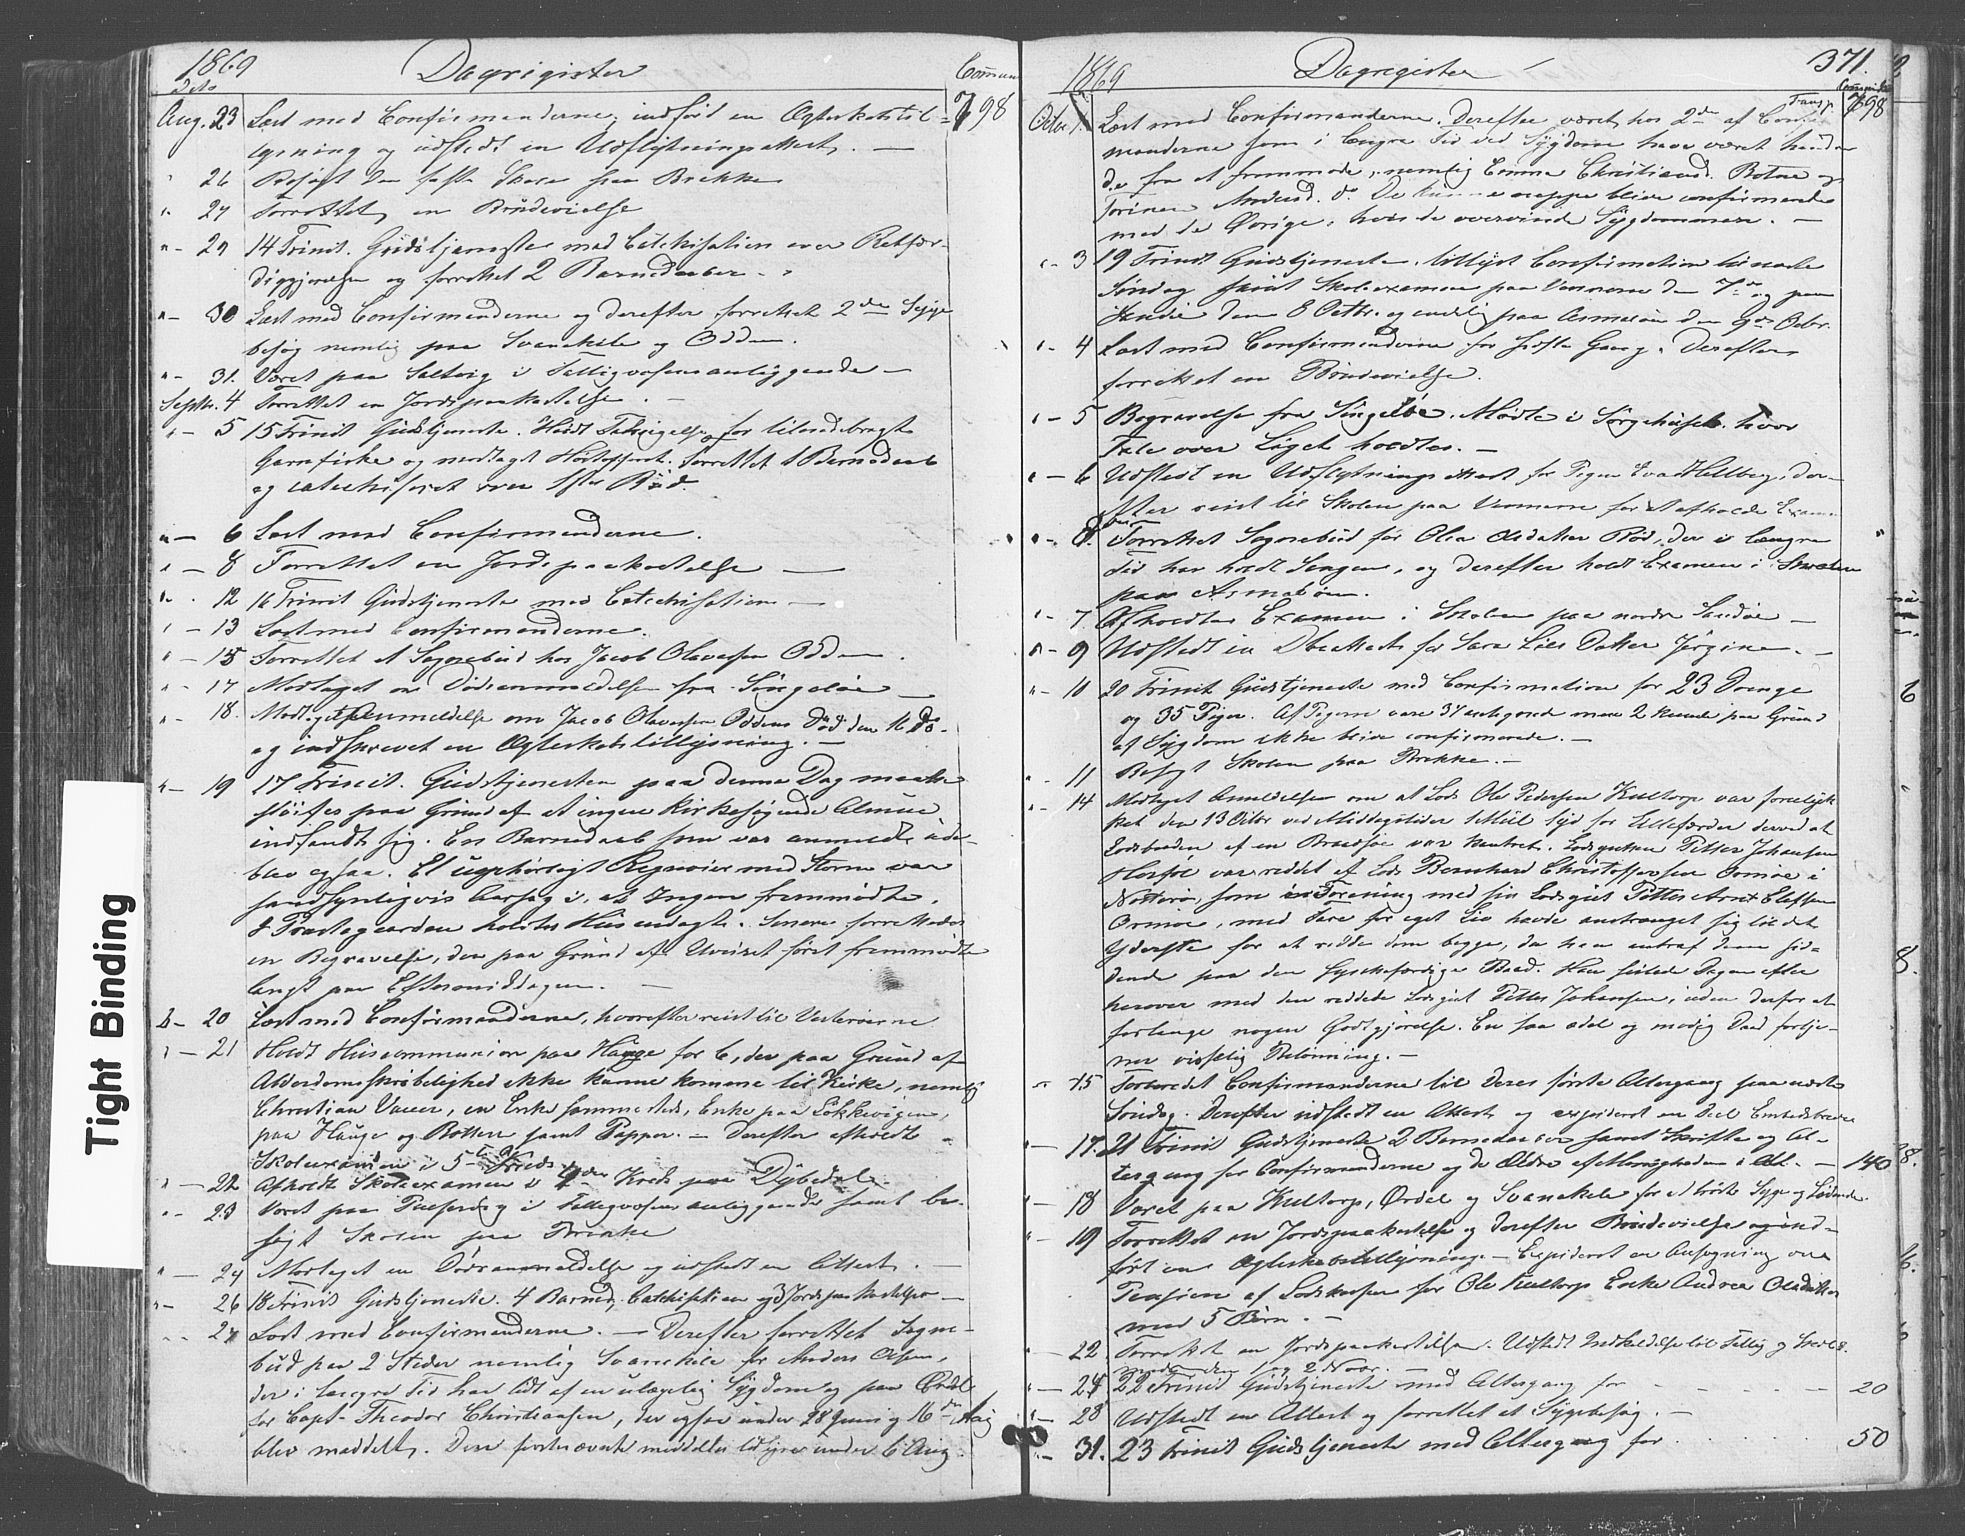 1869
Dato
Dagregister
Commun
Aug. 23 Læst med Confirmanderne, indført en Ægteskabstil- 798
lysning og udstedt en Udflytningsattest. —
" 26 Besøgt den faste Skole paa Brekke
" 27 Forrettet en Brudevielse
" - 29 14 Trinit. Gudstjeneste med Catechisation over Retfær-
diggjørelse og forrettet 2 Barnedaaber.
" - 30 Læst med Confirmanderne og derefter forrettet 2de Syge
besøg nemlig paa Svanekile og Odden.
" - 31. Været paa Saltvig i Fattigvæsensanliggende —
Septbr. 4 Forrettet en Jordspaakastelse. —
" - 5 15 Trinit Gudstjeneste. Holdt Taksigelse for tilendebragt
Garnfiske og modtaget Høstoffret. Forrettet 1 Barnedaab
og catechiseret over 1ste Bud.
" - 6 Læst med Confirmanderne.
" - 8 Forrettet en Jordspaakastelse —
" - 12 16 Trinit Gudstjeneste med Catechisation —
" - 13 Læst med Confirmanderne.
" - 15 Forrettet et Sognebud hos Jacob Olavesen Odden.
" - 17 Modtaget en Dødsanmeldelse fra Singeløe —
" - 18. Modtaget Anmeldelse om Jacob Olavesen Oddens Død den 16 ds.
og indskrevet en Ægteskabstillysning. —
" - 19 17 Trinit. Gudstjenesten paa denne Dag maatte
sløifes paa Grund af at ingen kirkesøgende Almue
indfandt sig. En Barnedaab som var anmeldt ude-
blev ogsaa. Et uophørligt Regnveir med Storm var
sandsynligvis Aarsag i, at Ingen fremmødte.
I Præstegaarden holdtes Husandagt. Senere forrettedes
en Begravelse, den paa Grund af Uveiret først fremmødte
langt paa Eftermiddagen. —
" - 20 Læst med Confirmanderne, hvorefter reist til Vesterøerne
" - 21 Holdt Huscommunion paa Hauge for 6, der paa Grund af
Alderdomsskrøbelighed ikke kunne komme til Kirke, nemlig
Christian Vauer, en Enke sammesteds, Enke paa Løkkevigen,
paa Hauge og Botten samt Papper. — Derefter afholdt
Skoleexamen i 5te Kreds
" - 22 Afholdt Skoleexamen i 4de Kreds paa Dybedal.
" - 23 Været paa i Fattigvæsensanliggende samt be-
søgt Skolen paa Brekke
" - 24 Modtaget en Dødsanmeldelse og udstedt en Attest. —
" - 26 18 Trinit Gudstjeneste. 4 Barned, Catechisation og 3 Jordspaakastelser —
" - 27 Læst med Confirmanderne. — Derefter forrettet Sogne-
bud paa 2 Steder nemlig Svanekile for Anders Olsen,
der i længre Tid har lidt af en ulægelig Sygdom og paa Ørdal
for Capt. Theodor Christiansen, der ogsaa under 28 Juni og 16de Aug
blev meddelt. Den førstnævnte meddeltes tidligere under 6 Aug.
1869
Dagregister
371.
Communik
Transp. 798
Octbr 1. Læst med Confirmanderne. Derefter været hos 2de af Confir
manderne som i længre Tid ved Sygdom have været hindre
de fra at fremmøde, nemlig Emma Christiansd. Botne og
Torine Andersd. do. De kunne neppe blive confirmerede
med de Øvrige, hvis de overvinde Sygdommen. —
" - 3 19 Trinit Gudstjeneste, tillyst Confirmation til næste
Søndag samt Skoleexamen paa Vennerne den 7de og paa
Sandø den 8 Octbr. og endelig paa Asmaløen den 9de Octbr.
" - 4 Læst med Confirmanderne for sidste Gang. Derefter
forrettet en Brudevielse.
" - 5 Begravelse fra Singeløe. Mødte i Sørgehuset, hvor
Tale over Liget holdtes. —
" - 6 Udstedt en Udflytningsattest for Pigen Eva Hellberg, der-
efter reist til Skolen paa Vennerne for at afholde Examen
" - 8. Forrettet Sognebud for Olea Olsdatter Rød, der i længre
Tid har holdt Sengen, og derefter holdt Examen i Skolen
paa Asmaløen.
" - 7 Afholdtes Examen i Skolen paa nordre Sandøe —
" - 9 Udstedt en Døbeattest for Lars Datter Jørgine. —
" - 10 20 Trinit Gudstjeneste med Confirmation for 23 Drenge
og 35 Piger. Af Pigerne vare 37 antegnede men 2 kunde paa Grund
af Sygdom ikke blive confirmerede. —
" - 11 Besøgt Skolen paa Brekke. —
" - 14 Modtaget Anmeldelse om at Lods Ole Pedersen Kultorp var forulyk
ket den 13 Octbr ved Middagstider 1 Miil Syd for Lillefærder derved at
Lodsbaaden af en Braadsøe var kantret. Lodsgutten Petter Johansen
Herføl var reddet af Lods Bernhard Christophersen Ormøe i
Nøtterø, som i Forening med sin Lodsgut Petter Arnt Eliassen
Ormøe, med Fare for eget Liv havde anstrænget sig til det
Yderste for at redde dem begge, da han antraf dem sid-
dende paa den Baad. Han seilede Dagen efter
herover med den reddede Lodsgut Petter Johansen, uden derfor at
forlange nogen Godtgjørelse. En saa ædel og modig Daad fortje-
ner visselig Belønning. —
" - 15 Forberedt Confirmanderne til deres første Altergang paa næste
Søndag. Derefter udstedt en Attest og expederet en Deel Embedsbreve
" - 17. 21 Trinit Gudstjeneste 2 Barnedaaber samt Skrifte og Al-
tergang for Confirmanderne og de Ældre af Menigheden i Alt. — 140
" - 18 Været paa Kultorp, Ørdal og Svanekile for at trøste Syge og Lidende
" - 19 Forrettet en Jordspaakastelse og derefter Brudevielse og ind-
ført en Ægteskabstillysning. — Expederet en Ansøgning om
Pension af Lodskassen for Ole Kultorps Enke Andrea Olsdatter
med 5 Børn. —
" - 22 Forrettet en Jordspaakastelse. Udstedt Indkaldelse til Fattig og Skole
møde den 1 og 2 Novbr.
" - 24 22 Trinit Gudstjeneste med Altergang for - - - 20
" - 28 Udstedt en Attest og forrettet et Sygebesøg. —
" - 31. 23 Trinit Gudstjeneste med Altergang for - - - 50
Tight Binding